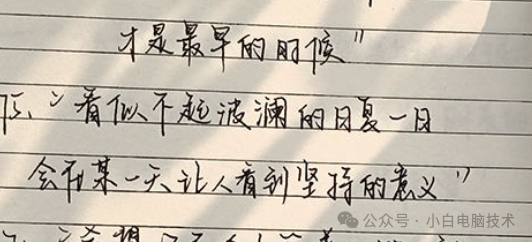 才是最早的时候"
15、"看似不起波澜的日夏一日
会在某一天让人看到坚持的意义"
公众号·小白电脑技术